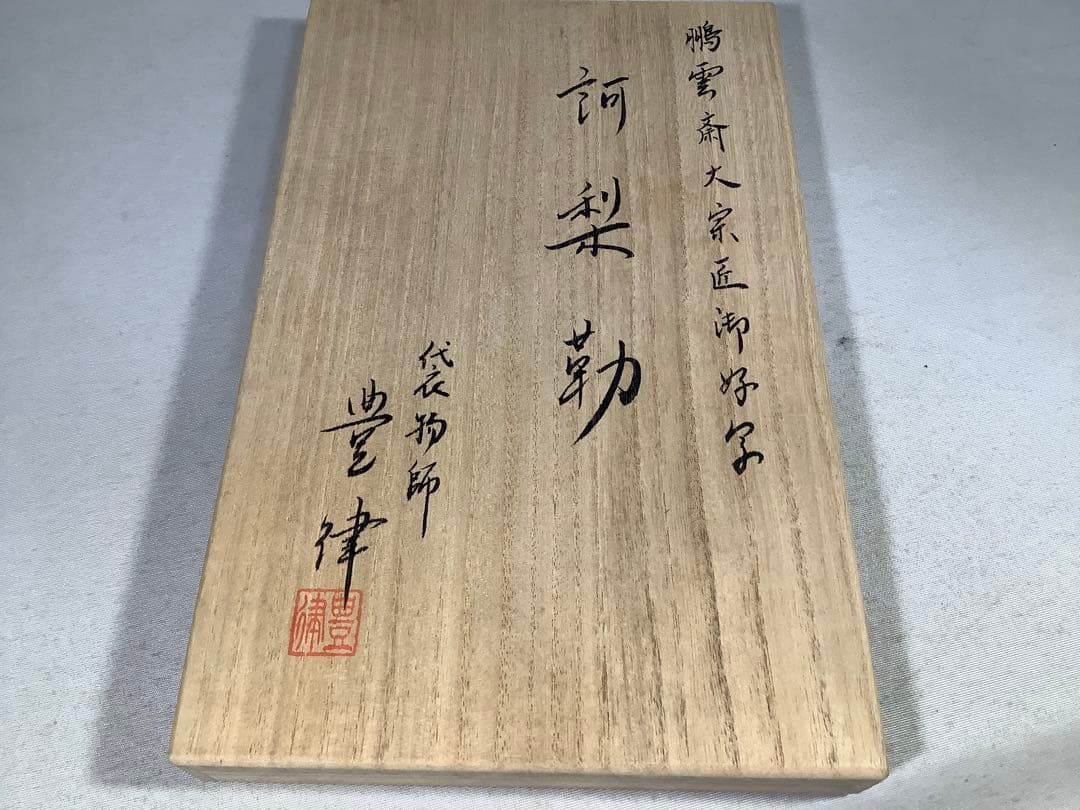 鵬雲斎大宗匠御好写
訶梨勒
袋物師
豊律
豊律